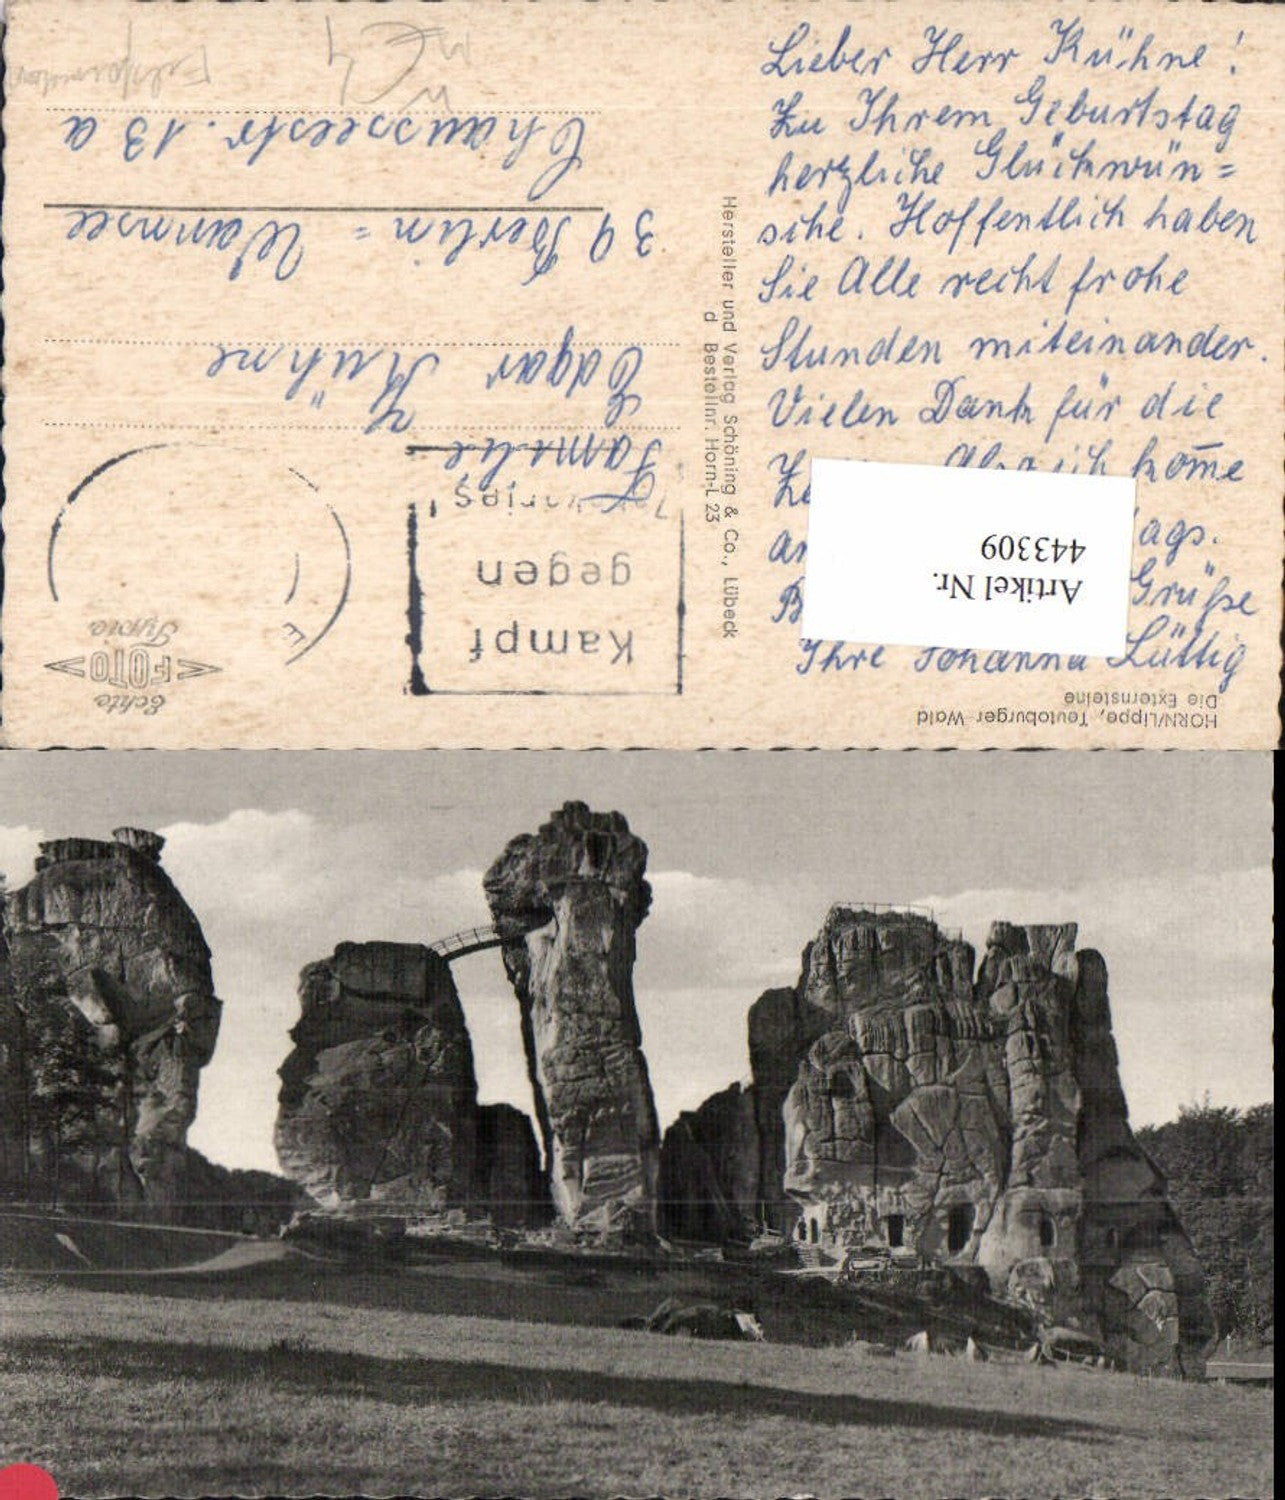 Lieber Herr Kühne!
Zu Ihrem Geburtstag
herzliche Glückwün=
sche. Hoffentlich haben
Sie Alle recht frohe
Stunden miteinander.
Vielen Dank für die
Also ich kom̄e
ags.
Grüße
Ihre Johanna Lüttig
Artikel Nr.
443309
HORN/Lippe, Teutoburger Wald
Die Externsteine
Hersteller und Verlag Schöning & Co., Lübeck
d Bestellnr. Horn-L 23
Echte
FOTO
Kampf
gegen
Familie
Edgar Kühne
39 Berlin = Wannsee
Chausseestr. 13 a